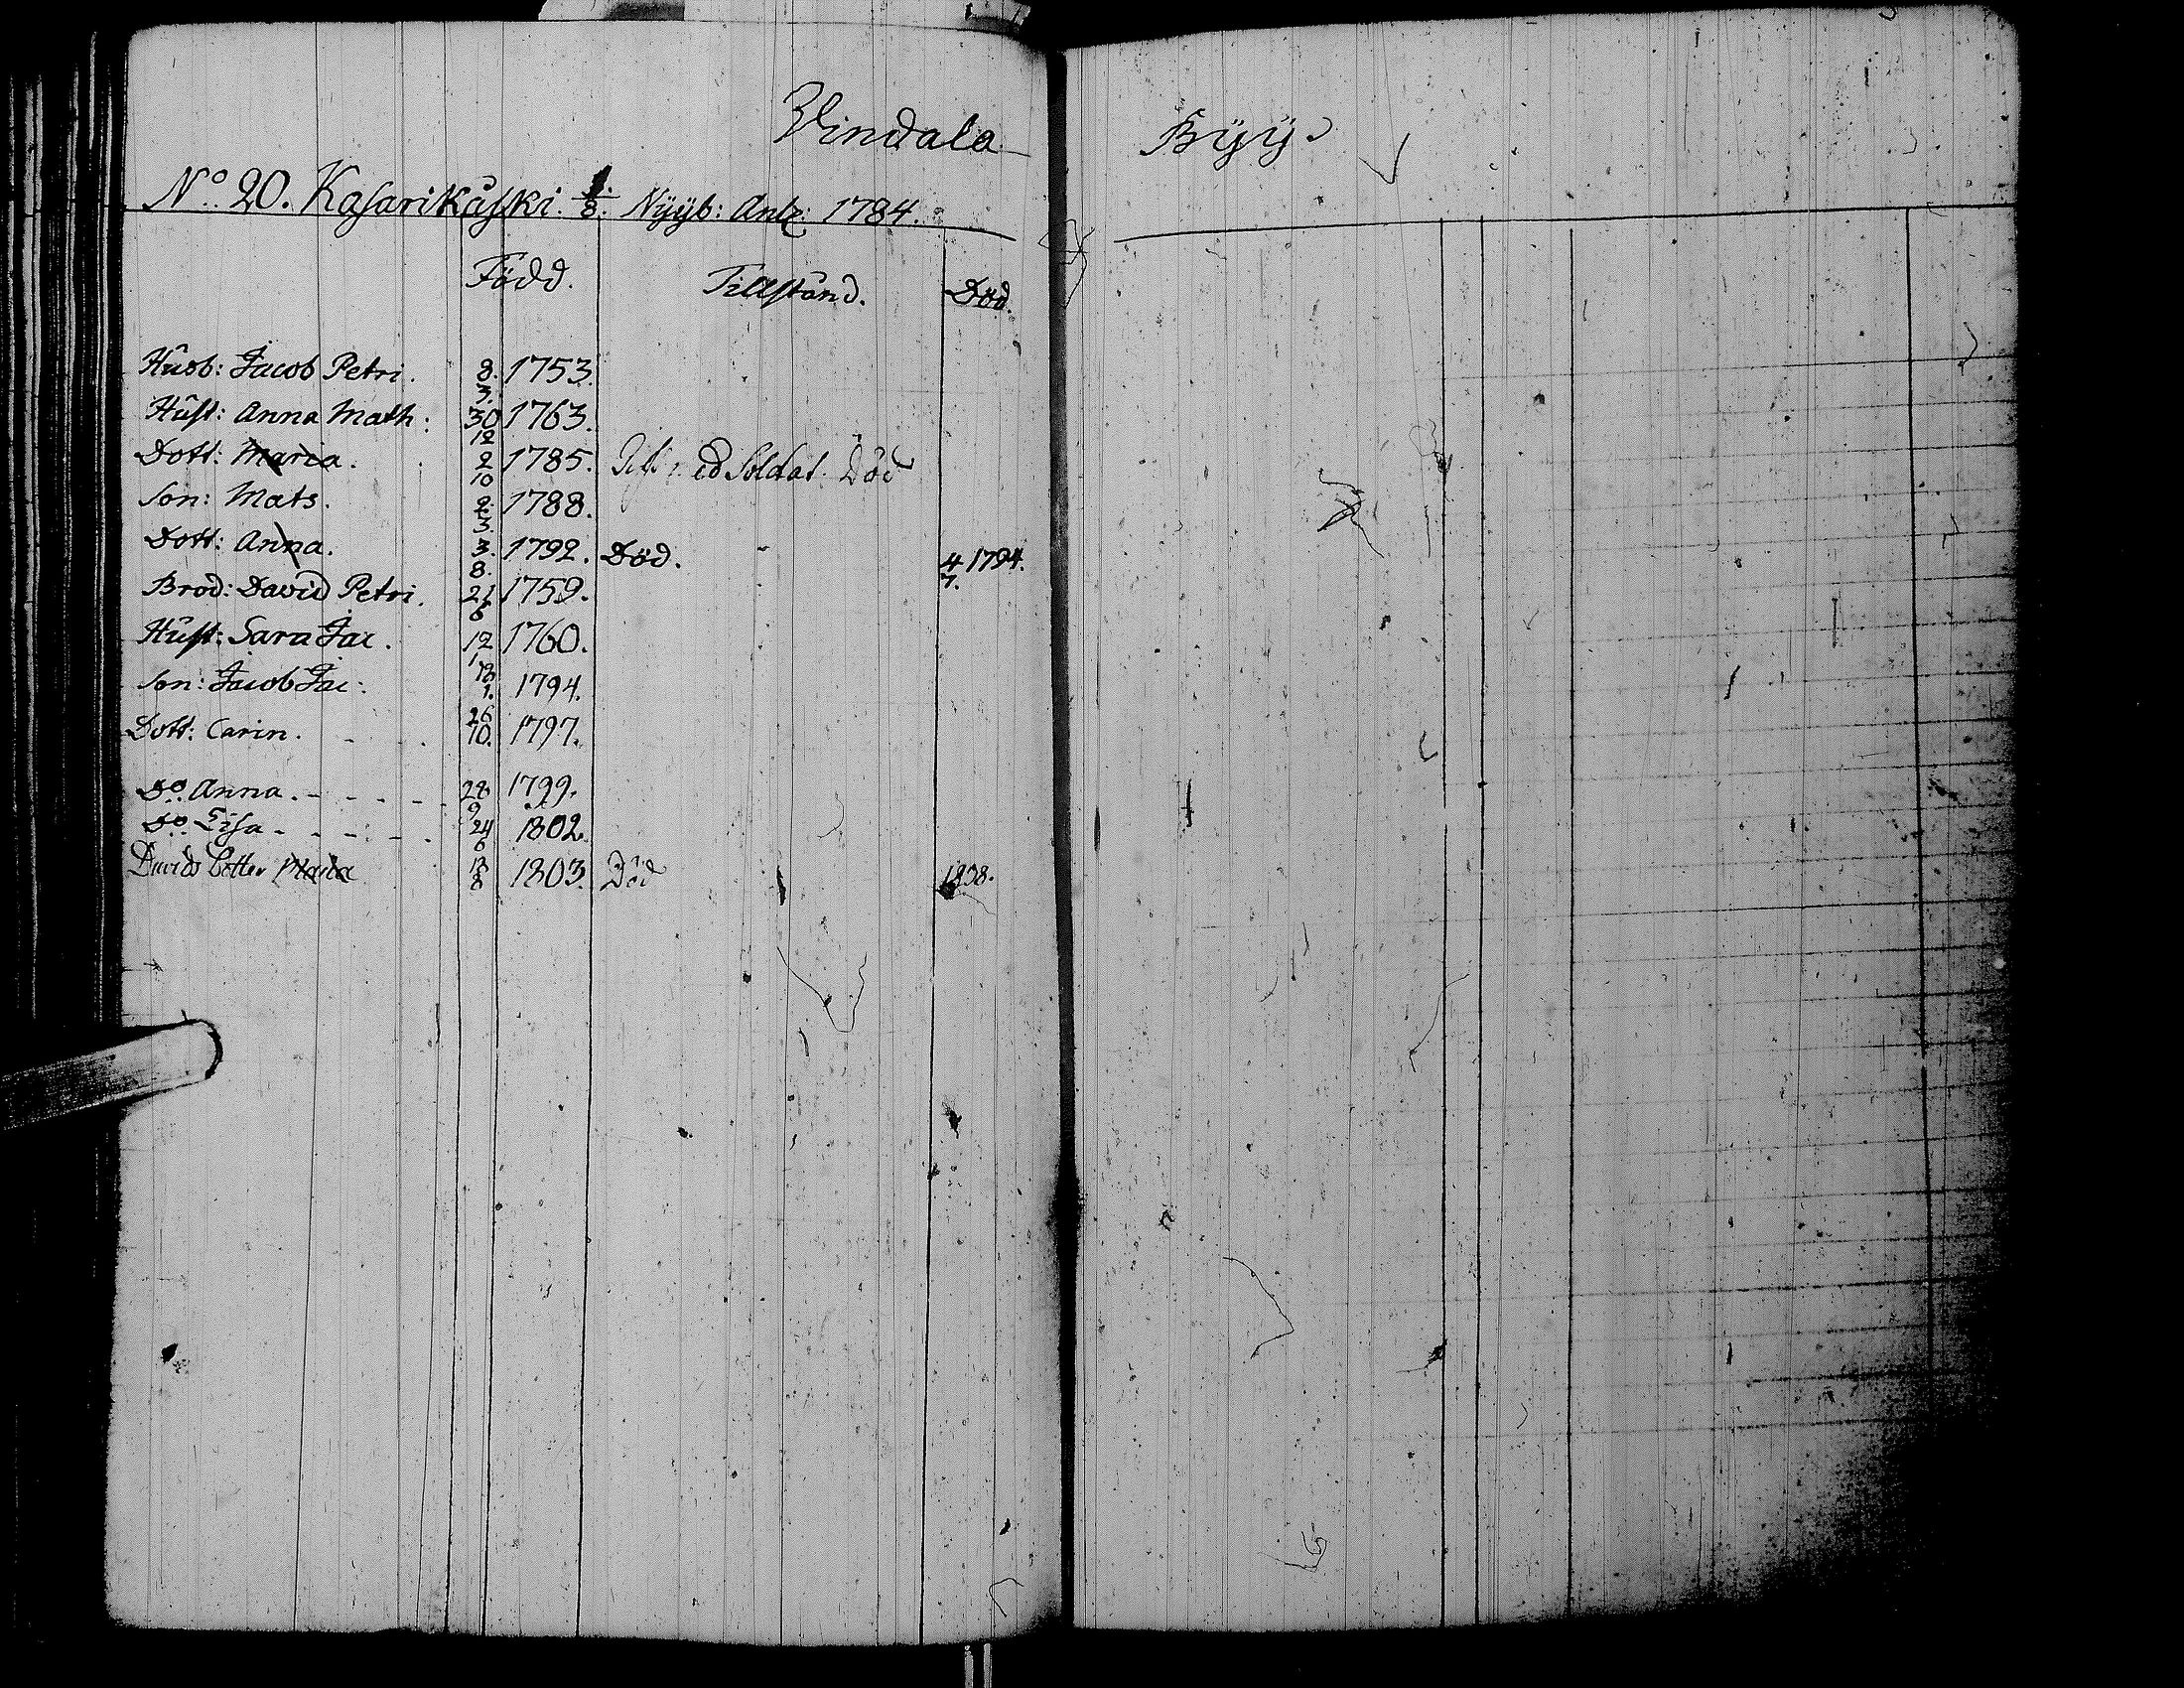 Vindala Byy.
No. 20. Kasarikaski. 1/8. Nyyb: Anl: 1784.
Född. Tillstånd. Död.
Husb: Jacob Petri. 8/3. 1753.
Hust: Anna Math: 30/12 1763.
Dott: Maria. 2/10 1785. Soldat. Död
Son: Mats. 2/3. 1788.
Dott: Anna. 3/8. 1792. Död. 4/7. 1794.
Brod: David Petri. 21/6 1759.
Hust: Sara Jac. 12/1 1760.
Son: Jacob Jac: 18/1. 1794.
Dott: Carin. 26/10. 1797.
Do. Anna. 28/9 1799.
Do. Lisa 24/6 1802.
Davids Dotter Maria 13/8 1803. Död 1838.